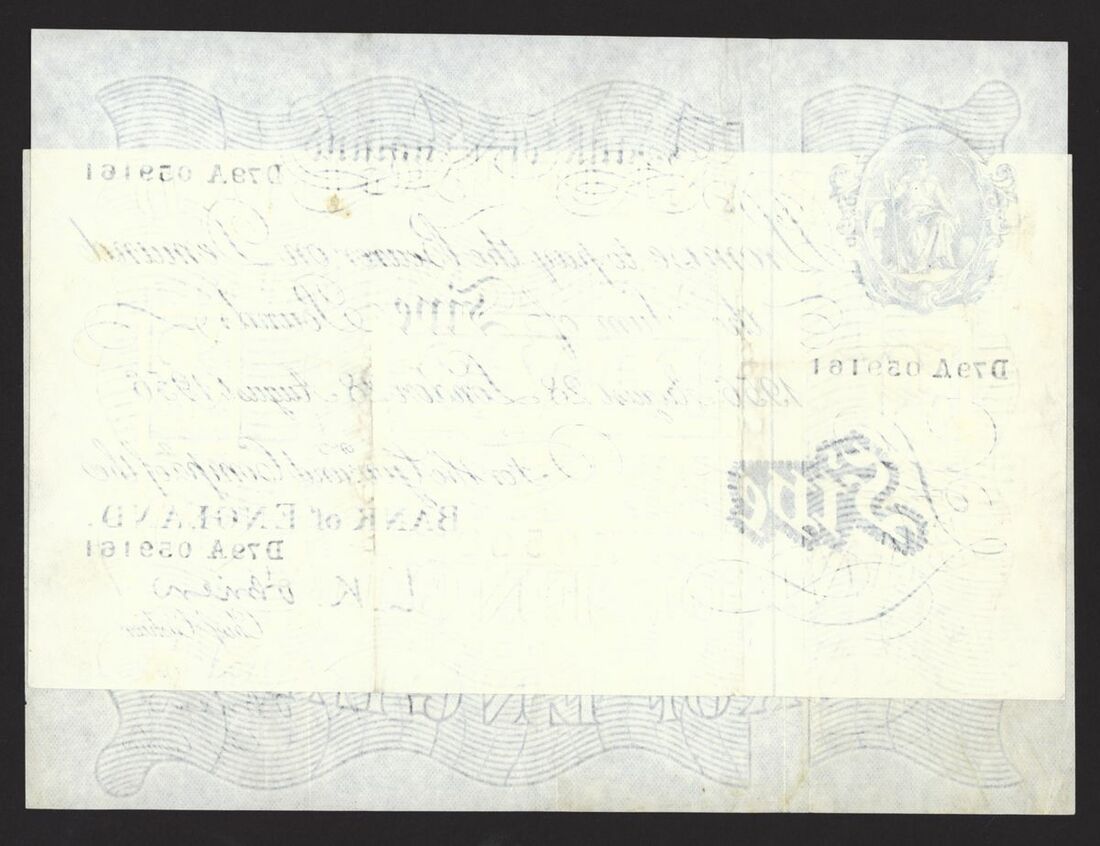 Bank of England
D79A 059161
Promise to pay the Bearer on Demand
the Sum of Five Pounds
D79A 059161
1956 August 28 London 28 August 1956
For the Gov.r and Comp.a of the
Five
BANK of ENGLAND.
D79A 059161
L. K. O'Brien
Chief Cashier
OF ENGL